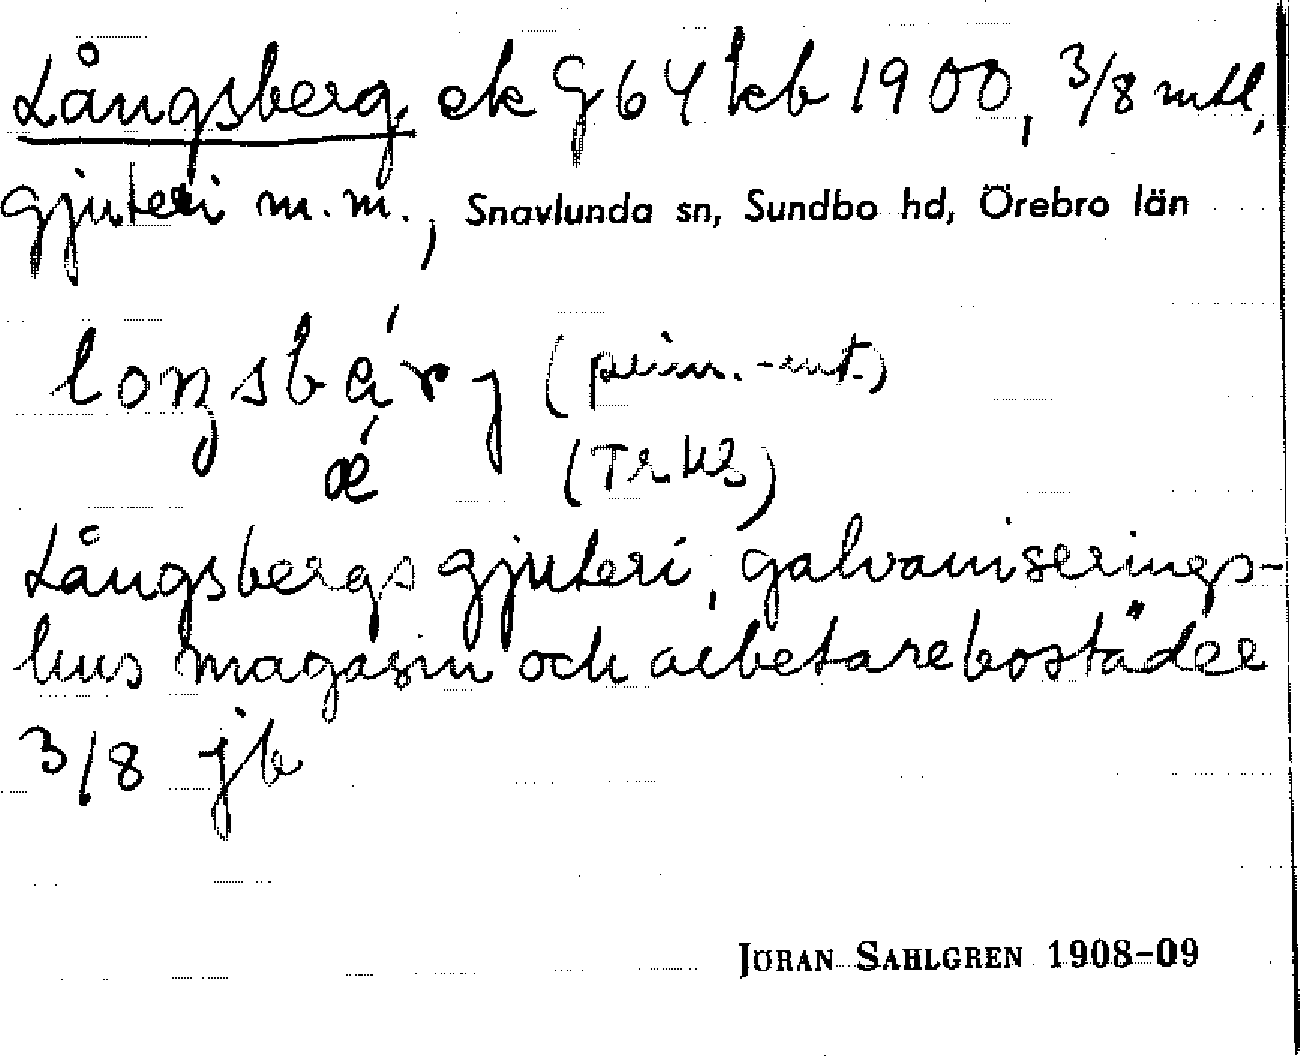 Långsberg, ek G 64 kb 1900, 3/8 mtl,
gjuteri m.m., Snavlunda sn, Sundbo hd, Örebro län
loŋsbárj (prim.-ent.)
ǽ (Tr Kb)
Långsbergs gjuteri, galvaniserings-
hus magasin och arbetarebostäder
3/8 jb
JÖRAN SAHLGREN 1908-09